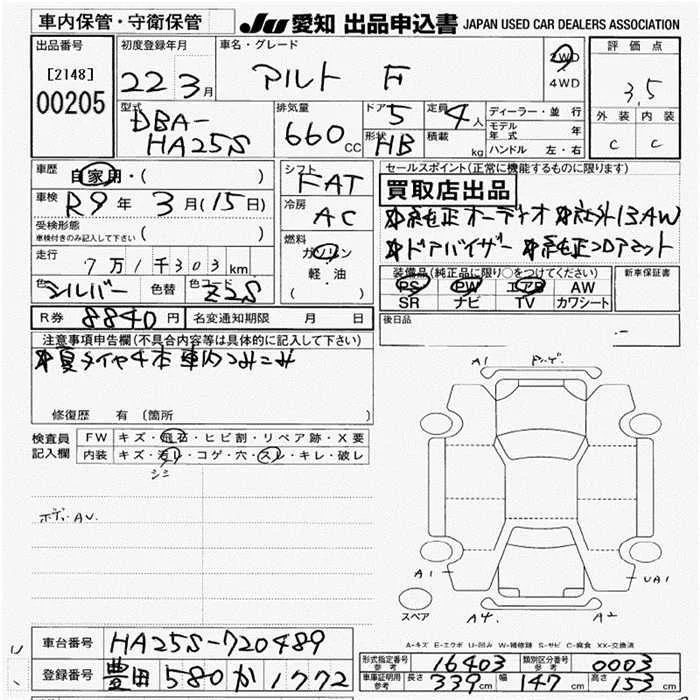 車内保管・守衛保管
JU 愛知 出品申込書 JAPAN USED CAR DEALERS ASSOCIATION
出品番号
[2148]
00205
初度登録年月
22 3月
車名・グレード
アルト F
2WD
4WD
評価点
3.5
外装 内装
C C
型式
DBA-
HA25S
排気量
660cc
ドア 5
形状 HB
定員 4人
積載 kg
ディーラー・並行
モデル年式 年
ハンドル 左・右
車歴
自家用・( )
車検
R9年 3月(15日)
受検形態
車検付きのみ記入して下さい ( )
走行
7万1千303km
色 シルバー 色替 色コード Z2S
シフト
FAT
冷房
AC
燃料
ガソリン
軽・油
( )
セールスポイント(正常に機能するものに限ります)
買取店出品
*純正オーディオ *社外13AW
*ドアバイザー *純正フロアマット
装備品(純正品に限り○をつけてください)
PS PW エアB AW
SR ナビ TV カワシート
新車保証書
後日品
R券 8840円 名変通知期限 月 日
注意事項申告欄(不具合内容等は具体的に記入して下さい)
*夏タイヤ4本車内つみこみ
修復歴 有 (箇所 )
検査員
記入欄
FW キズ・飛石・ヒビ割・リペア跡・X要
内装 キズ・汚レ・コゲ・穴・スレ・キレ・破レ
シミ
ボディAU.
A1
A1
UA1
スペア
A4.
A2
A-キズ E-エクボ U-凹み W-補修跡 S-サビ C-腐食 XX-交換済
車台番号 HA25S-720489
登録番号 豊田 580 か 1772
形式指定番号
参考 16403
類別区分番号
参考 0003
車庫証明用
参考 長さ 339cm 幅 147cm 高さ 153cm